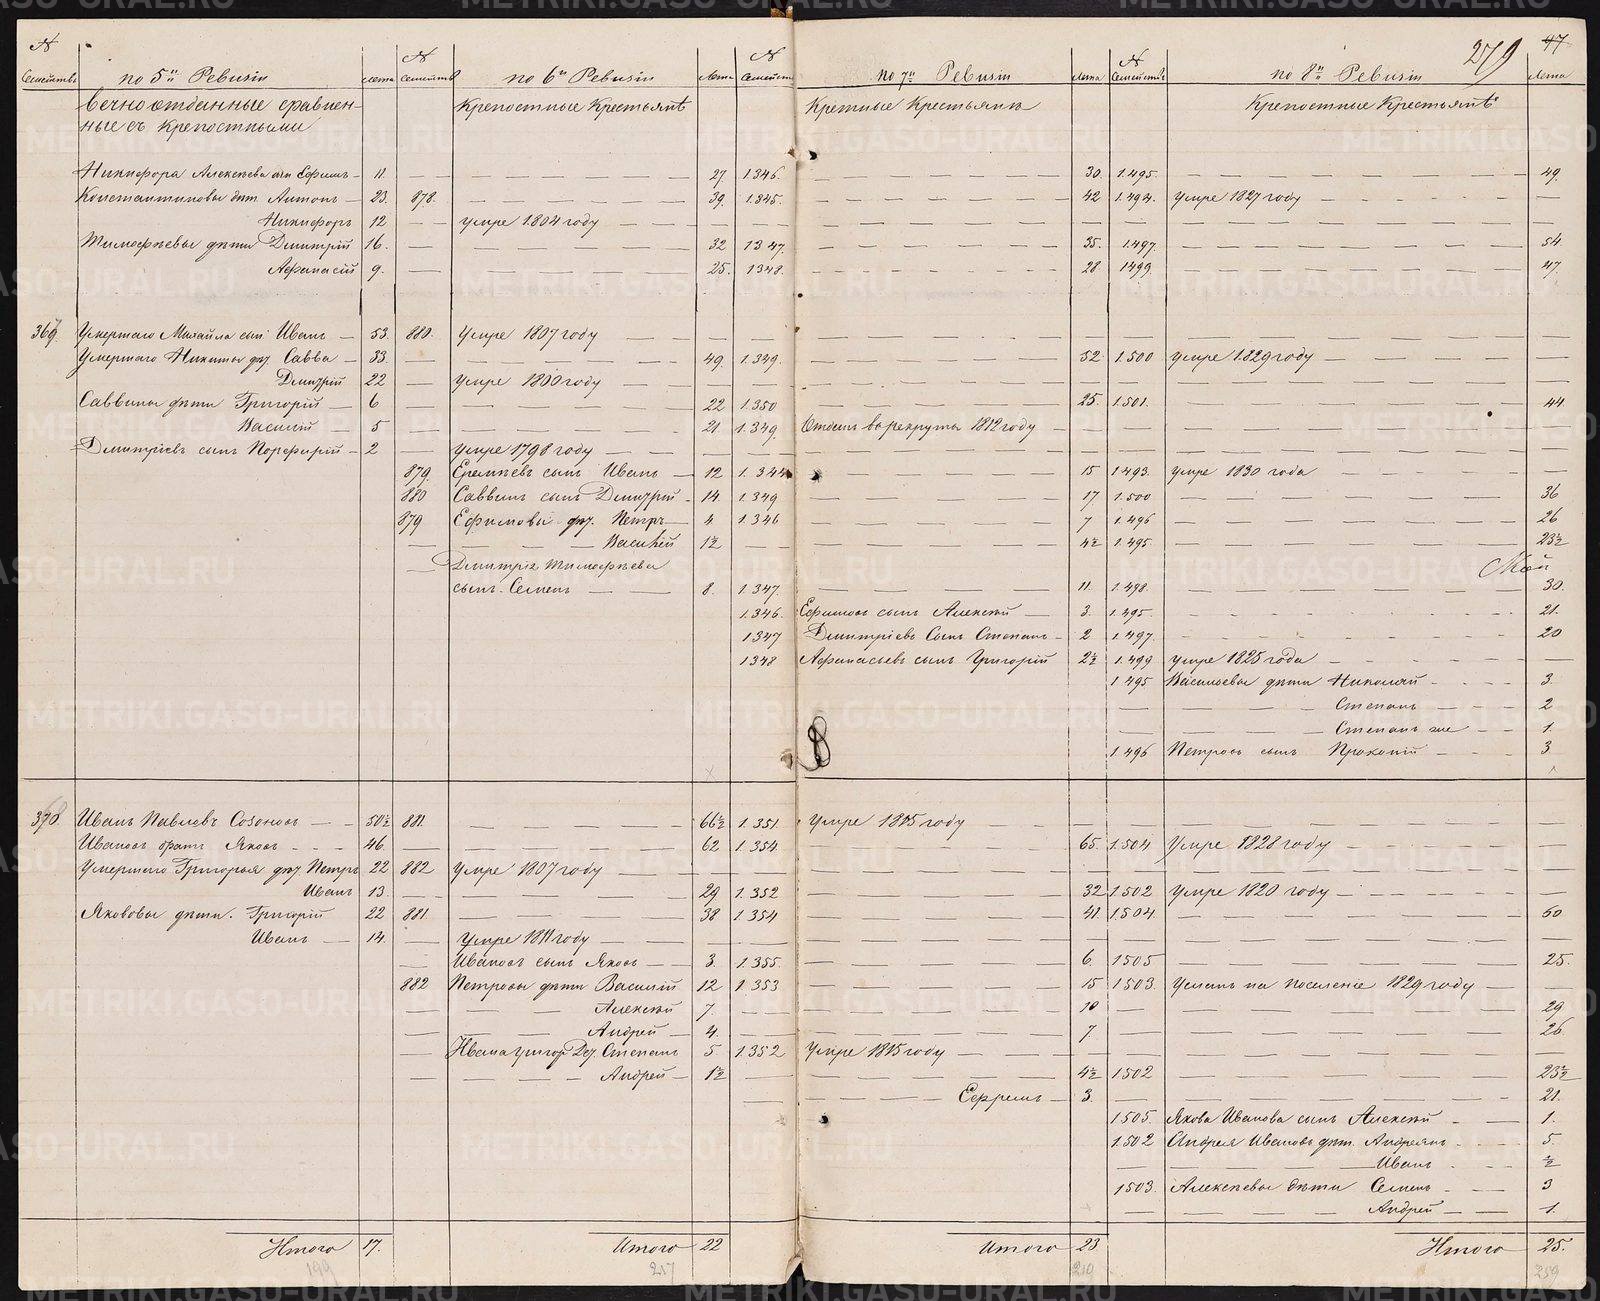 279 47
№ Семействъ по 5й Ревизiи лета № Семействъ по 6й Ревизiи лета № Семейств по 7й Ревизiи лета № Семействъ по 8й Ревизiи лета
Вечноотданные сравнен- Крепостные Крестьянѣ Крепные Крестьяне Крепостные Крестьянѣ
ные съ Крепостными
Никифора Алексеева сын Ефимъ 11 — 27 1346 — 30 1495 — 49
Константиновы дѣти Антонъ 23 878 — 39 1345 — 42 1494 умре 1827 году —
Никифоръ 12 — умре 1804 году —
Тимофѣевы дѣти Дмитрiй 16 — 32 1347 — 35 1497 — 54
Афанасiй 9 — 25 1348 — 28 1499 — 47
369 Умершаго Михайла сын Иванъ 53 880 Умре 1807 году —
Умершаго Никиты дѣт Савва 33 — 49 1349 — 52 1500 умре 1829 году —
Дмитрiй 22 — умре 1800 году —
Саввины дѣти Григорiй 6 — 22 1350 — 25 1501 — 44
Василiй 5 — 21 1349 Отданъ в рекруты 1812 году —
Дмитрiевъ сынъ Порфирiй 2 — умре 1798 году —
879 Еремѣевъ сынъ Иванъ 12 1344 — 15 1493 умре 1830 года —
880 Саввинъ сынъ Дмитрiй 14 1349 — 17 1500 — 36
879 Ефимовы дѣт. Петръ 4 1346 — 7 1496 — 26
— Василiй 1½ — 4½ 1495 — 23½
— Дмитрiя Тимофѣева Мой
сынъ Семенъ 8 1347 — 11 1498 — 30
1346 Ефимовъ сынъ Алексѣй 3 1495 — 21
1347 Дмитрiевъ Сынъ Степанъ 2 1497 — 20
1348 Афанасьевъ сынъ Григорiй 2½ 1499 умре 1825 года —
1495 Васильевы дѣти Николай 3
— Степанъ 2
— Степанъ же 1
1496 Петровъ сынъ Прокопiй 3
370 Иванъ Павловъ Созоновъ 50½ 881 — 66½ 1351 Умре 1815 году —
Ивановъ братъ Яковъ 46 — 62 1354 — 65 1504 Умре 1828 году —
Умершаго Григорья дѣт Петръ 22 882 Умре 1807 году —
Иванъ 13 — 29 1352 — 32 1502 Умре 1820 году —
Яковovы дѣти Григорiй 22 881 — 38 1354 — 41 1504 — 60
Иванъ 14 — Умре 1811 году —
— Ивановъ сынъ Яковъ 3 1355 — 6 1505 — 25
882 Петровы дѣти Василiй 12 1353 — 15 1503 Усланъ на поселенiе 1829 году —
— Алексѣй 7 — 10 — 29
— Андрей 4 — 7 — 26
— Ивана Григор Дѣт. Степанъ 5 1352 Умре 1815 году —
— Андрей 1½ — 4½ 1502 — 23½
— Ефремъ 3 — 21
1505 Якова Иванова сынъ Алексѣй 1
1502 Андрея Иванова дѣт. Андреянъ 5
— Иванъ ½
1503 Алексѣевы дѣти Семенъ 3
— Андрей 1
Итого 17 Итого 22 Итого 23 Итого 25
199 217 219 259
METRIKI.GASO-URAL.RU